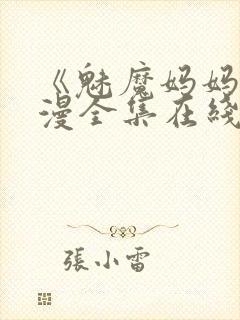 《魅魔妈妈
漫全集在线
張小雷